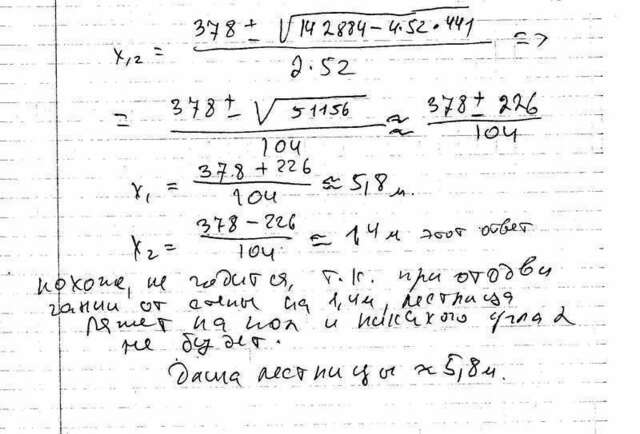 x₁,₂ = (378 ± √(142884 − 4·52·441)) / (2·52) =>
= (378 ± √51156) / 104 ≈ (378 ± 226) / 104
x₁ = (378 + 226) / 104 ≈ 5,8 м.
x₂ = (378 − 226) / 104 = 1,4 м этот ответ
похоже, не годится, т.к. при отодви
гании от стены на 1,4м, лестница
ляжет на пол и никакого угла α
не будет.
лестницы ≈ 5,8 м.